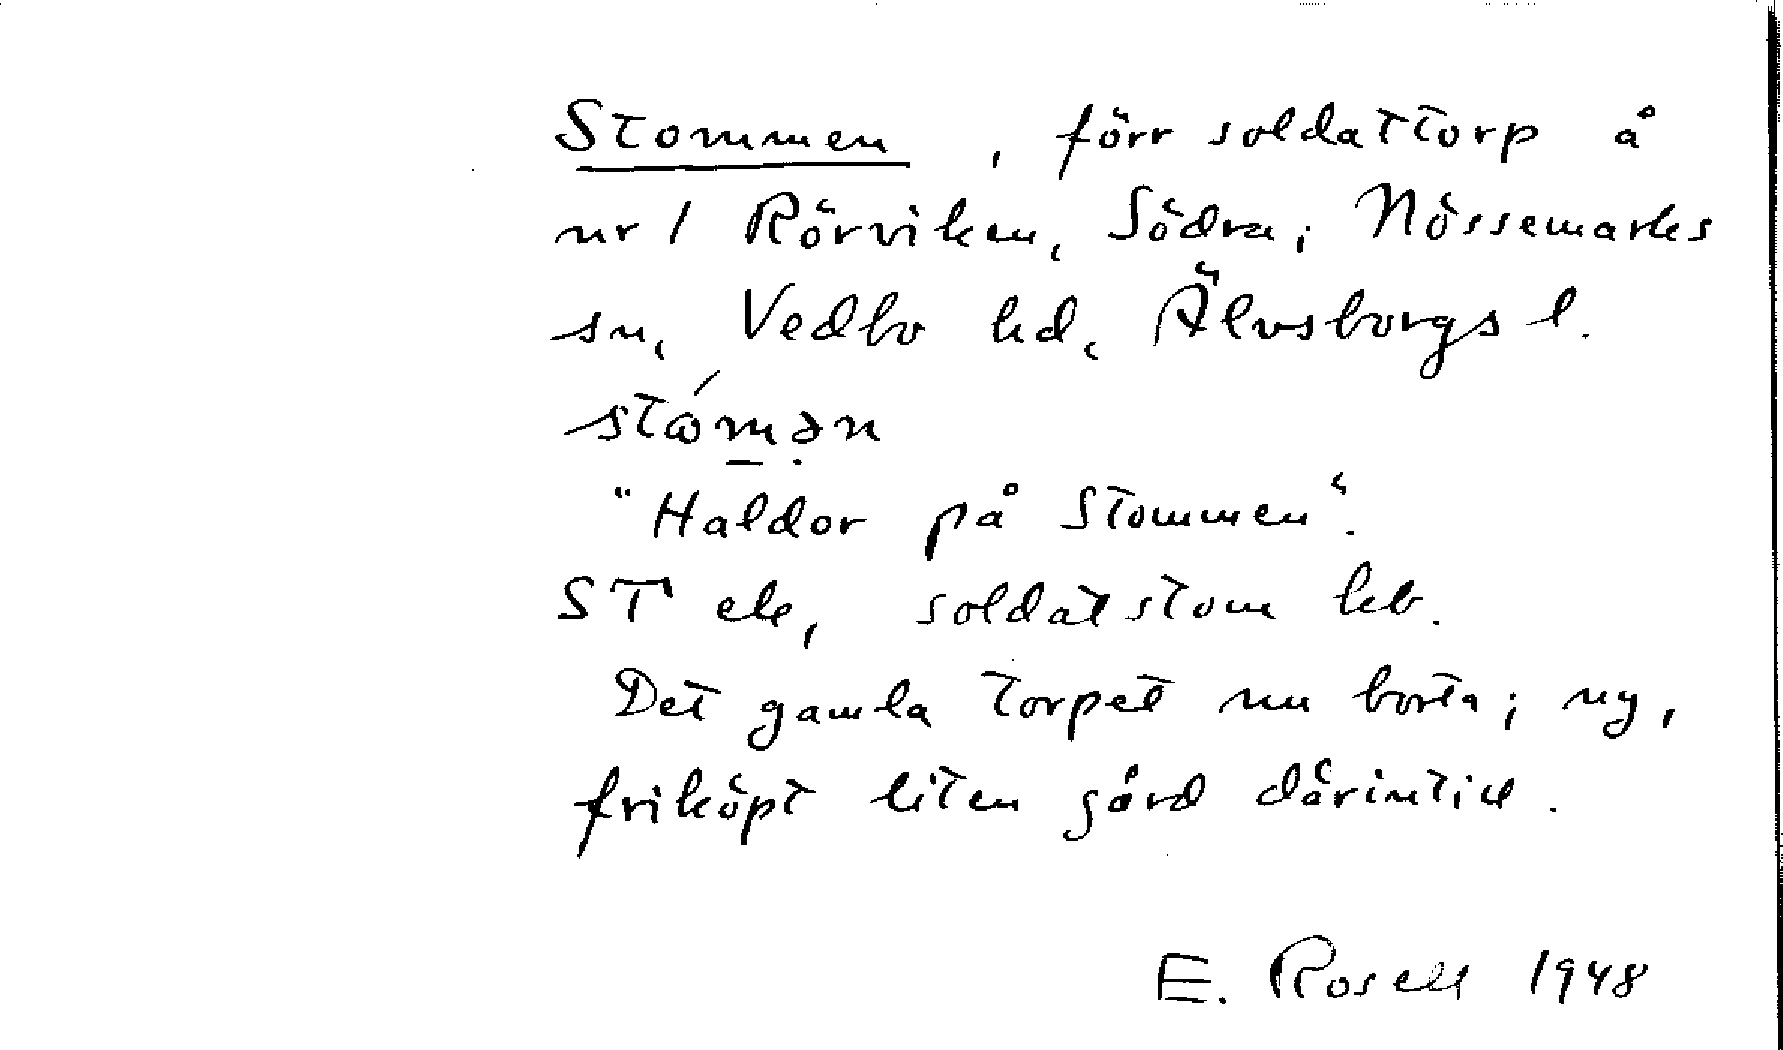 Stommen, förr soldattorp å
nr 1 Rörviken, Södra, Nössemarks
sn, Vedbo hd, Älvsborgs l.
stómən
"Haldor på Stommen".
ST ek, soldatstom kb.
Det gamla torpet nu borta; ny,
friköpt liten gård därintill.
E. Rosell 1948